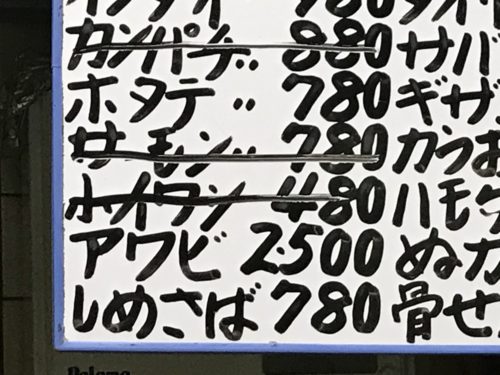 780
カンパチ〃 880 サバ
ホタテ〃 780 ギザ
サーモン〃 780 かつお
ホイワシ 480 ハモ
アワビ 2500 ぬか
しめさば 780 骨せ
Paloma